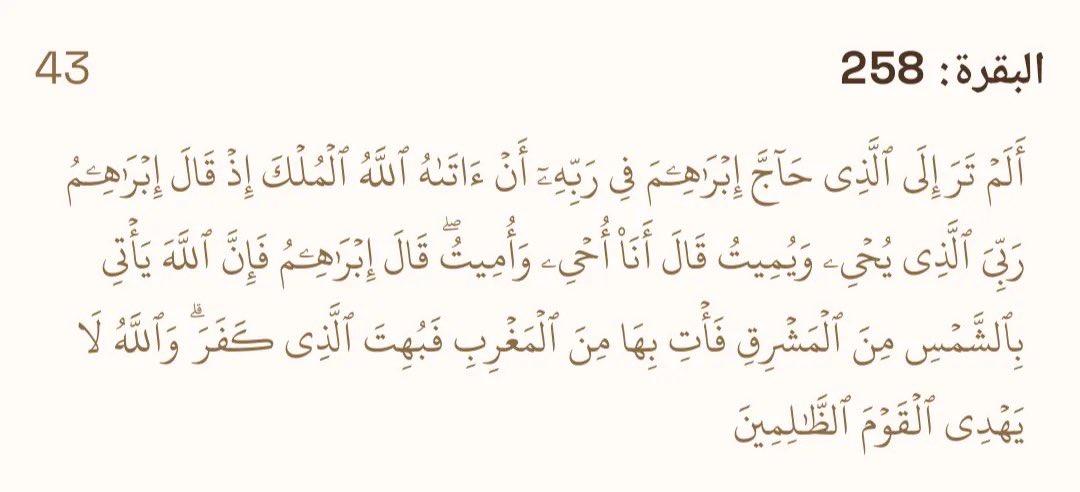 البقرة: 258
43
أَلَمۡ تَرَ إِلَى ٱلَّذِی حَاۤجَّ إِبۡرَ ٰ⁠هِـۧمَ فِی رَبِّهِۦۤ أَنۡ ءَاتَىٰهُ ٱللَّهُ ٱلۡمُلۡكَ إِذۡ قَالَ إِبۡرَ ٰ⁠هِـۧمُ
رَبِّیَ ٱلَّذِی یُحۡیِۦ وَیُمِیتُ قَالَ أَنَا۠ أُحۡیِۦ وَأُمِیتُۖ قَالَ إِبۡرَ ٰ⁠هِـۧمُ فَإِنَّ ٱللَّهَ یَأۡتِی
بِٱلشَّمۡسِ مِنَ ٱلۡمَشۡرِقِ فَأۡتِ بِهَا مِنَ ٱلۡمَغۡرِبِ فَبُهِتَ ٱلَّذِی كَفَرَۗ وَٱللَّهُ لَا
یَهۡدِی ٱلۡقَوۡمَ ٱلظَّـٰلِمِینَ